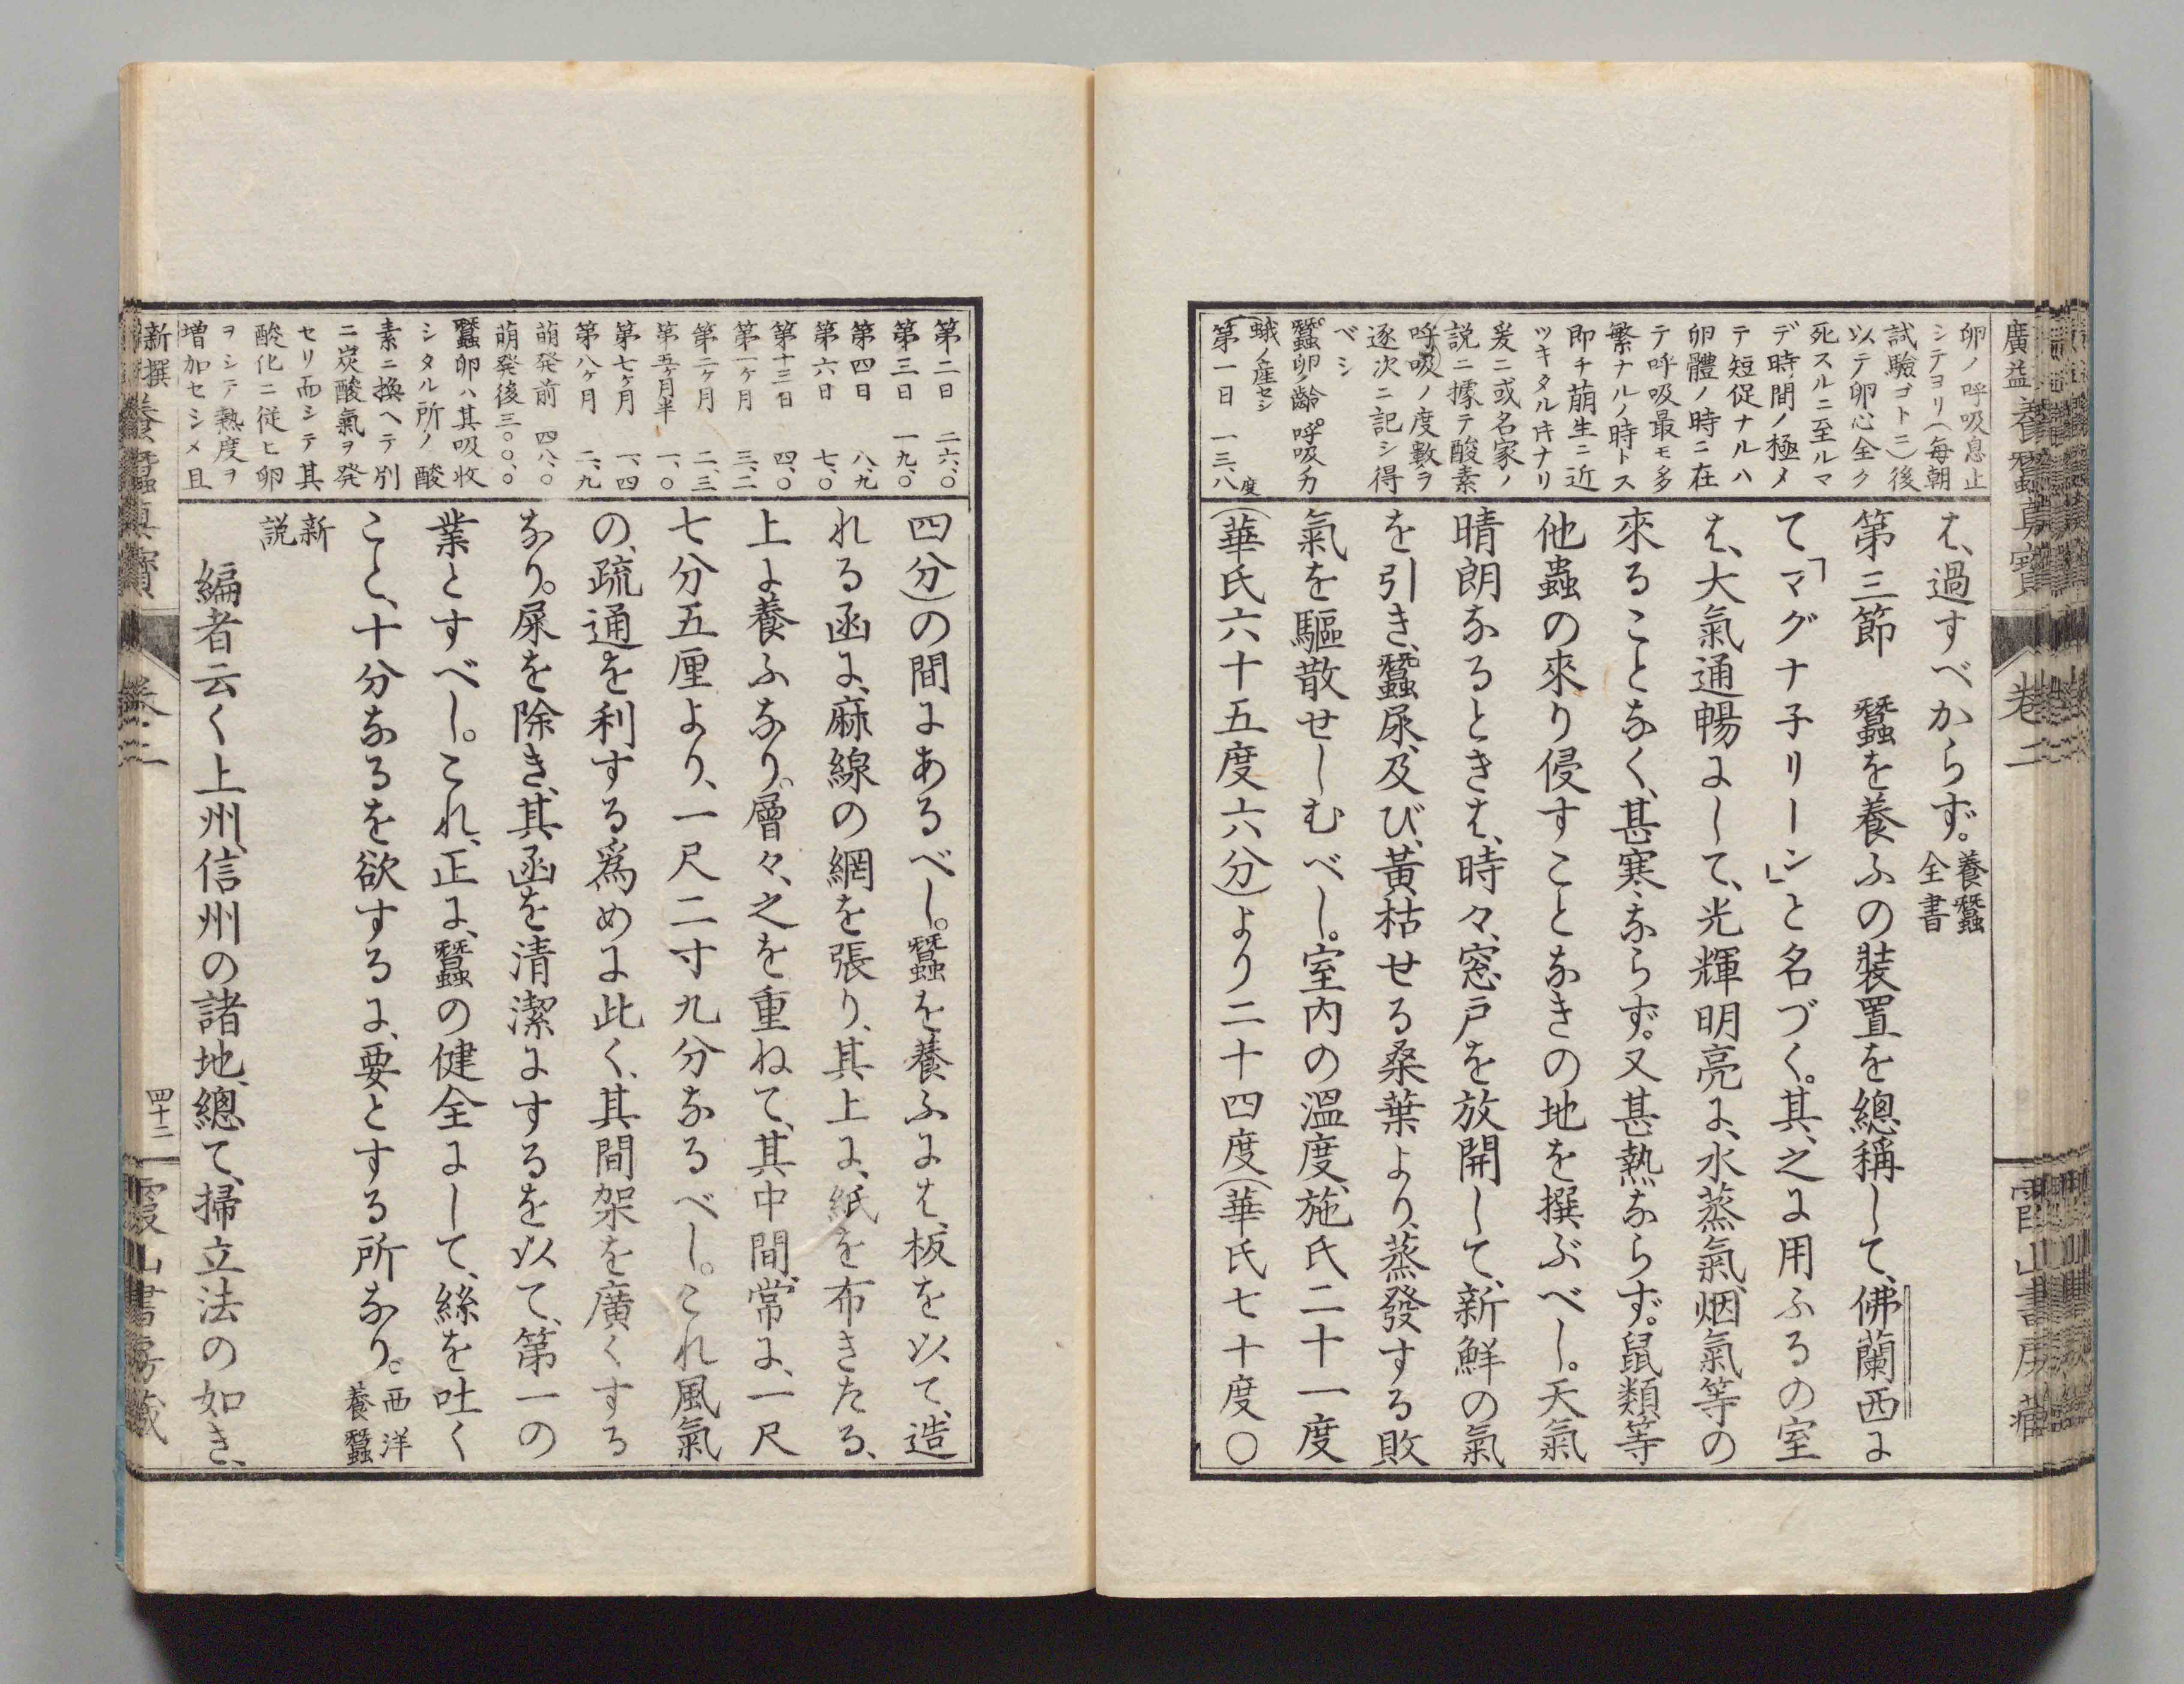 廣益養蠶真寶 卷二 霞山書房藏
卵ノ呼吸息止
シテヨリ(每朝
試驗ゴトニ)後
以テ卵心全ク
死スルニ至ルマ
デ時間ノ極メ
テ短促ナルハ
卵體ノ時ニ在
テ呼吸最モ多
繁ナルノ時トス
即チ萠生ニ近
ツキタル𪜈ナリ
爰ニ或名家ノ
説ニ據テ酸素
呼吸ノ度數ヲ
逐次ニ記シ得
ベシ
蠶卵ノ齡 呼吸力
(蛾ノ産セシ
第一日 一三、八度
は、過すべからず。養蠶全書
第三節 蠶を養ふの装置を總稱して、佛蘭西に
て「マグナ子リーン」と名づく。其、之に用ふるの室
は、大氣通暢にして、光輝明亮に、水蒸氣、烟氣等の
來ることなく、甚寒ならず。又甚熱ならず。鼠類等
他蟲の來り侵すことなきの地を撰ぶべし。天氣
晴朗なるときは、時々、窓戸を放開して、新鮮の氣
を引き、蠶尿、及び、黃枯せる桑葉より、蒸發する敗
氣を驅散せしむべし。室内の溫度、施氏二十一度
(華氏六十五度六分)より二十四度(華氏七十度〇
第二日 二六、〇
第三日 一九、〇
第四日 八、九
第六日 七、〇
第十三日 四、〇
第一ヶ月 三、二
第二ヶ月 二、三
第五ヶ月半 一、〇
第七ヶ月 一、四
第八ヶ月 二、九
萌発前 四八、〇
萌発後 三〇〇、〇
蠶卵ハ其吸收
シタル所ノ酸
素ニ換ヘテ別
ニ炭酸氣ヲ発
セリ而シテ其
酸化ニ従ヒ卵
ヲシテ熱度ヲ
増加セシメ且
四分)の間にあるべし。蠶を養ふには、板を以て、造
れる函に、麻線の網を張り、其上に、紙を布きたる、
上に養ふなり。層々、之を重ねて、其中間、常に、一尺
七分五厘より、一尺二寸九分なるべし。これ風氣
の、疏通を利する爲めに此く、其間架を廣くする
なり。屎を除き、其函を清潔にするを以て、第一の
業とすべし。これ、正に、蠶の健全にして、絲を吐く
こと、十分なるを欲するに、要とする所なり。西洋養蠶
新説
編者云く上州、信州の諸地、總て、掃立法の如き、
新撰養蠶真寶 卷二 四十二 霞山書房藏